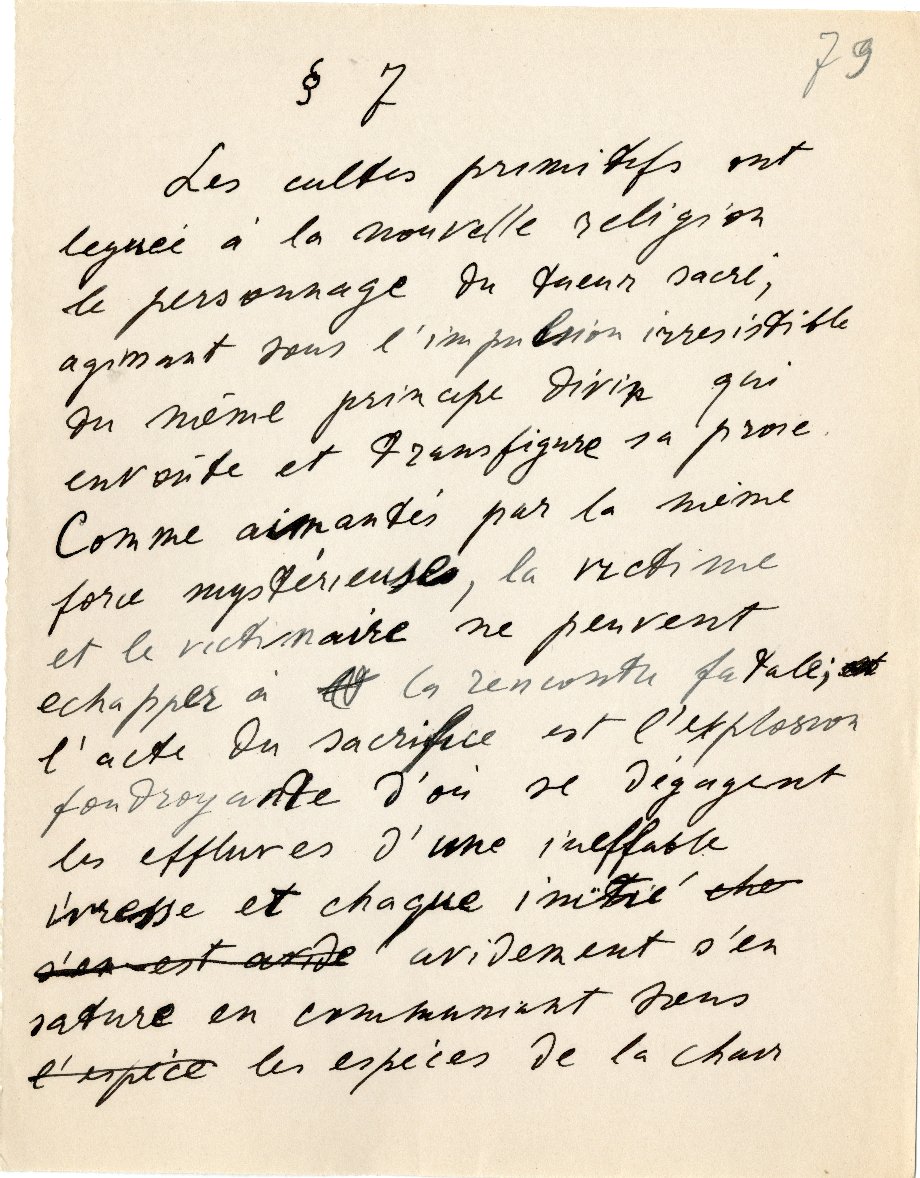 79
§ 7
Les cultes primitifs ont
legué à la nouvelle religion
le personnage du tueur sacré,
agissant sous l'impulsion irresistible
du même principe divin qui
envoûte et transfigure sa proie.
Comme aimantés par la même
force mystérieuse, la victime
et le victimaire ne peuvent
echapper à la rencontre fatale;
l'acte du sacrifice est l'explosion
foudroyante d'où se dégagent
les effluves d'une ineffable
ivresse et chaque initié che
s'en est avide avidement s'en
sature en communiant sous
l'espèce les espèces de la chair